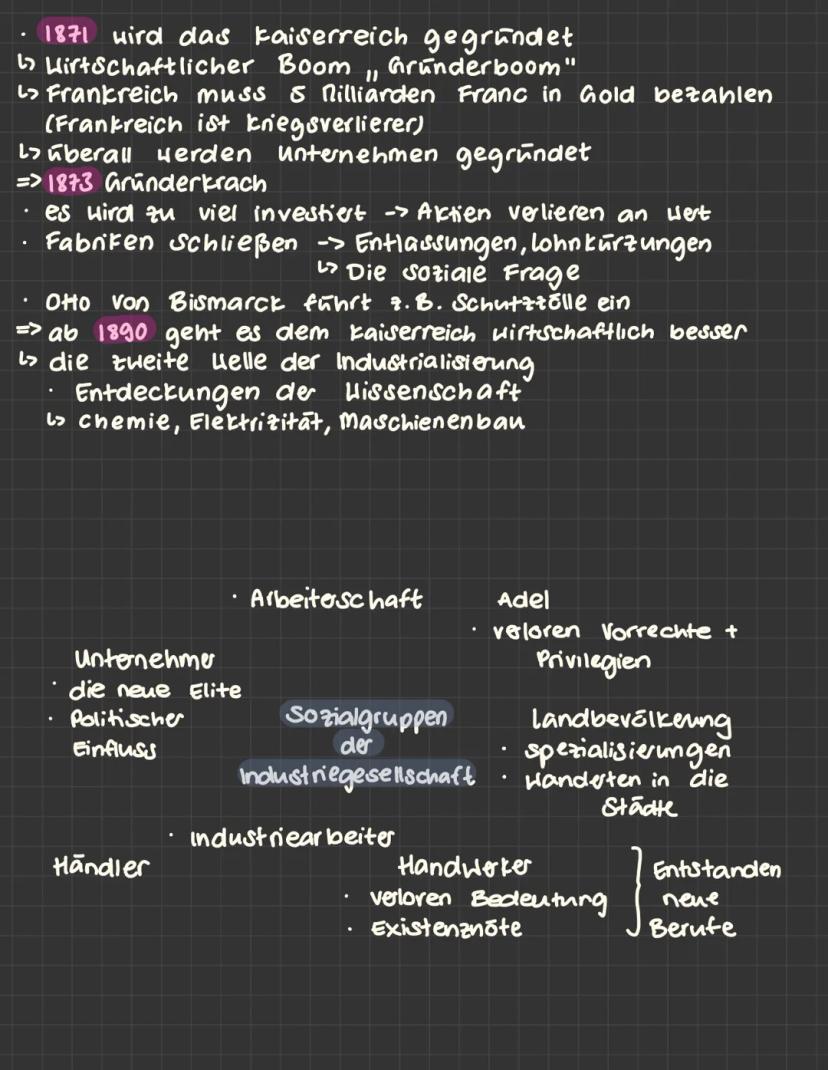 · 1871 wird das Kaiserreich gegründet
↳ Wirtschaftlicher Boom „Gründerboom"
↳ Frankreich muss 5 Milliarden Franc in Gold bezahlen
(Frankreich ist Kriegsverlierer)
↳ überall werden Unternehmen gegründet
=> 1873 Gründerkrach
· es wird zu viel investiert -> Aktien verlieren an Wert
· Fabriken schließen -> Entlassungen, Lohnkürzungen
↳ Die soziale Frage
· Otto von Bismarck führt z.B. Schutzzölle ein
=> ab 1890 geht es dem Kaiserreich wirtschaftlich besser
↳ die zweite Welle der Industrialisierung
· Entdeckungen der Wissenschaft
↳ Chemie, Elektrizität, Maschienenbau
· Arbeiterschaft
Adel
· verloren Vorrechte +
Privilegien
Unternehmer
· die neue Elite
· Politischer
Einfluss
Sozialgruppen
der
Industriegesellschaft
Landbevölkerung
· spezialisierungen
· wanderten in die
Städte
· Industriearbeiter
Händler
Handwerker
· verloren Bedeutung
· Existenznöte
} Entstanden
neue
Berufe